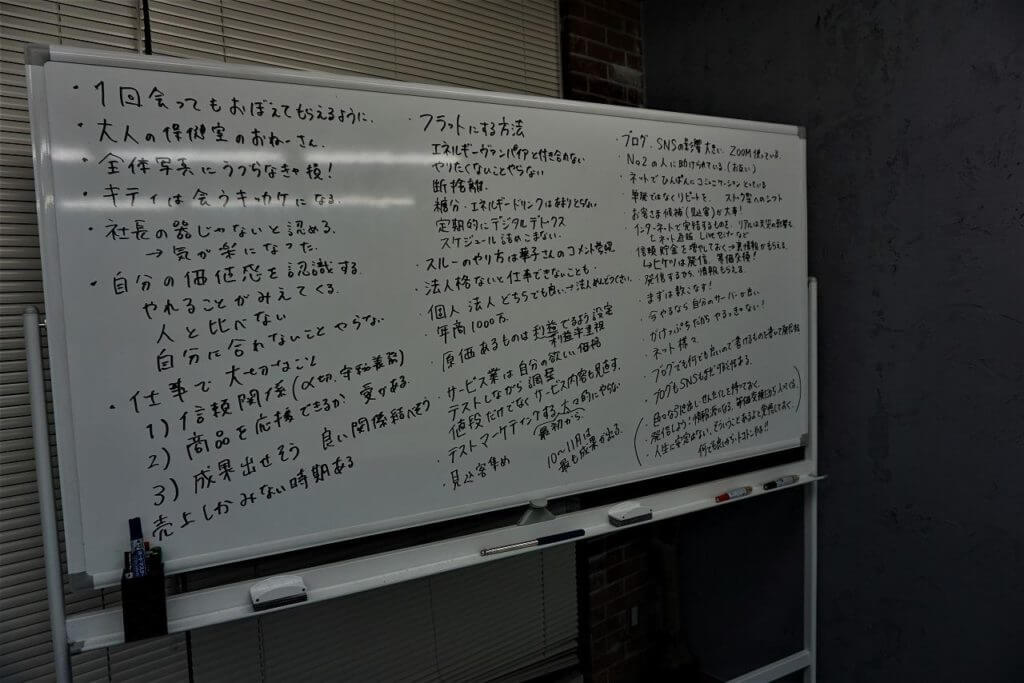 ・1回会ってもおぼえてもらえるように.
・大人の保健室のおねーさん.
・全体写真にうつらなきゃ損!
・キティは会うキッカケになる.
・社長の器じゃないと認める.
→気が楽になった.
・自分の価値感を認識する.
やれることがみえてくる.
人と比べない
自分に合わないことやらない
・仕事で大切なこと
1)信頼関係(〆切,守秘義務)
2)商品を応援できるか 愛がある.
3)成果出せそう 良い関係結べそう
売上しかみない時期ある
・フラットにする方法
エネルギーヴァンパイアと付き合わない
やりたくないことやらない
断捨離.
糖分・エネルギードリンクはあまりとらない.
定期的にデジタルデトックス
スケジュール詰めこまない.
・スルーのやり方は華子さんのコメント参照
・法人格ないと仕事できないことも.
・個人 法人どちらでも良い→法人めんどうくさい.
・年商1000万.
・原価あるものは利益でるよう設定
利益率重視
・サービス業は自分の欲しい価格
テストしながら調整
値段だけでなくサービス内容も見直す.
・テストマーケティングする 大々的にやらない
最初から
・見込客集め
10〜11月は
最も成果が出る.
・ブログ.SNSの影響大きい. ZOOM使っている.
・No2の人に助けられている(お互い)
・ネットでひんぱんにコミュニケーションとっている
・単発ではなくリピートを. ストック型へのシフト
・お客さま候補(見込客)が大事!
・インターネットで完結するものを. リアルは天災の影響も
ネット通販 Liveセミナーなど
・信頼貯金を増やしておく→裏情報がもらえる.
→ヒケツは発信. 等価交換!
発信するから,情報もらえる.
・まずは数こなす!
・今やるなら自分のサーバーが良い
・がけっぷちだからやるっきゃない!
・ネット様々
・ブログでも何でも良いので書けるものを書いて
・ブログもSNSも
・人生に安定はない.
何でも良いからトコトン!!